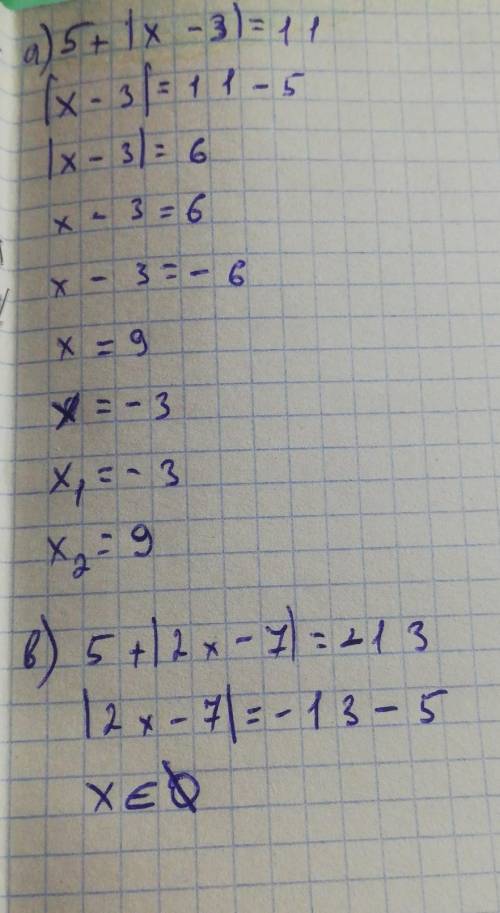 а) 5 + |x - 3| = 11
|x - 3| = 11 - 5
|x - 3| = 6
x - 3 = 6
x - 3 = - 6
x = 9
x = - 3
x₁ = - 3
x₂ = 9
в) 5 + |2x - 7| = -13
|2x - 7| = -13 - 5
x ∈ ∅